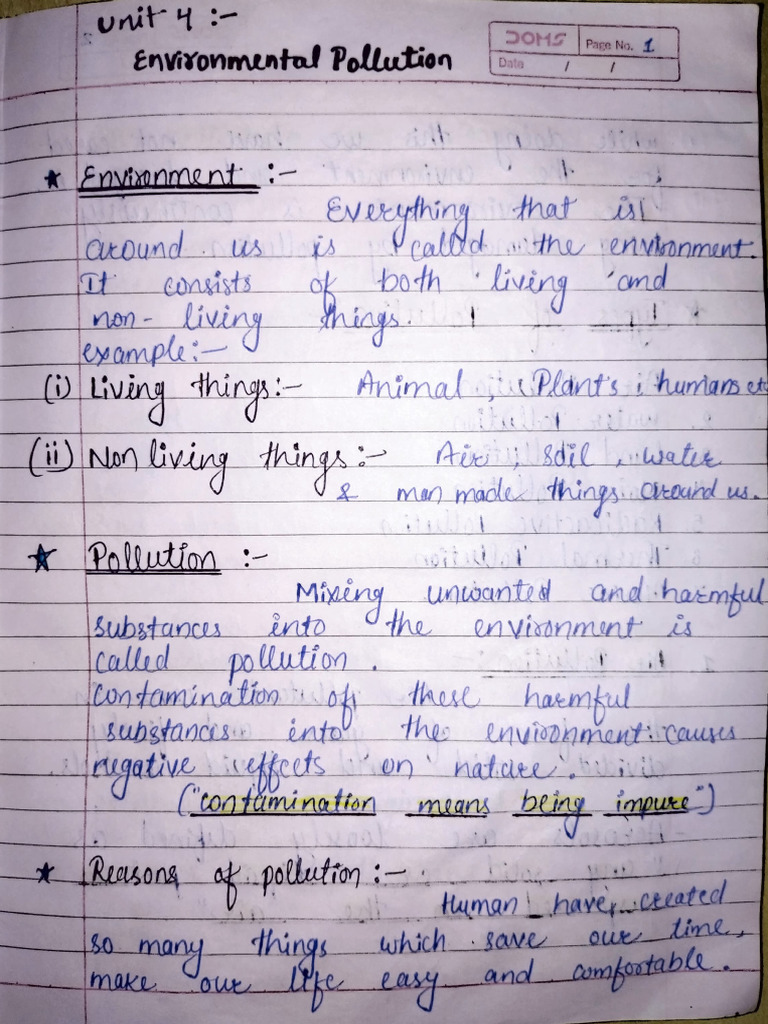 Unit 4 :-
Environmental Pollution
DOMS
Page No. 1
Date / /
★ Environment :-
Everything that is
around us is called the environment.
It consists of both living and
non- living things.
example:-
(i) Living things:- Animal, Plants, humans etc
(ii) Non living things:- Air, soil, water
& man made things around us.
★ Pollution :-
Mixing unwanted and harmful
substances into the environment is
called pollution.
contamination of these harmful
substances into the environment causes
negative effects on nature.
("contamination means being impure")
★ Reasons of pollution:-
Human have created
so many things which save our time,
make our life easy and comfortable.